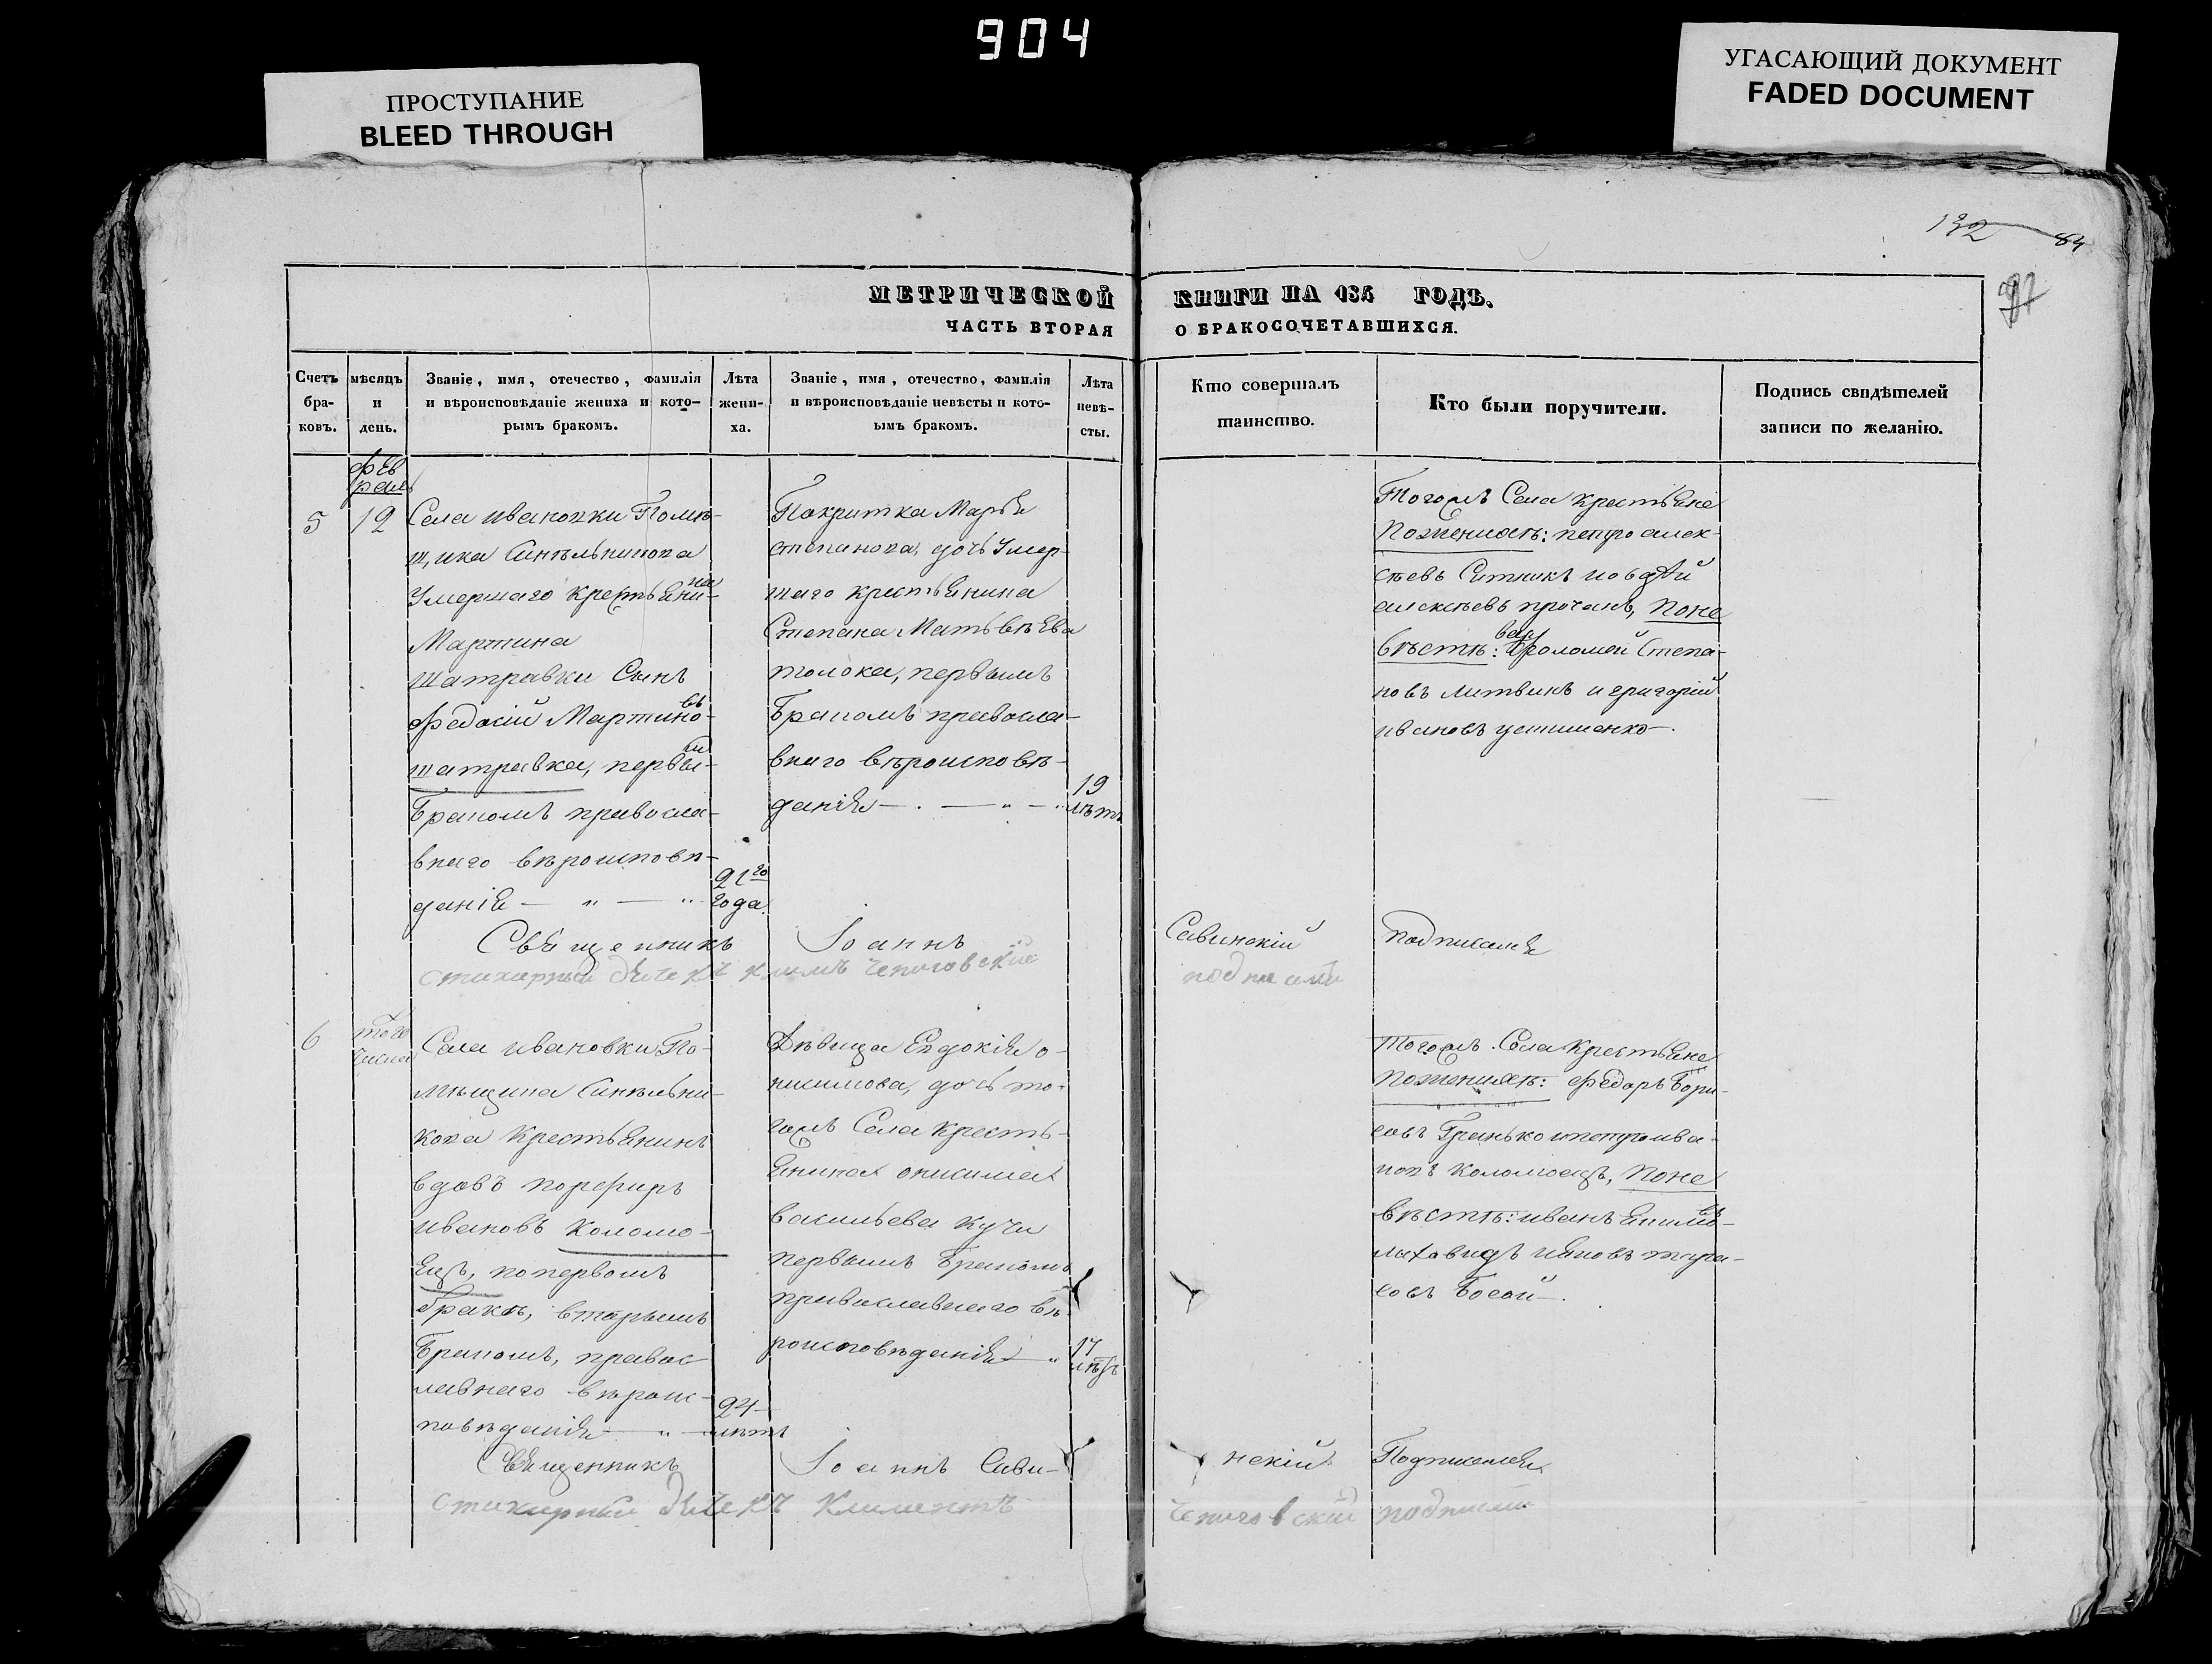 904
ПРОСТУПАНИЕ
BLEED THROUGH
УГАСАЮЩИЙ ДОКУМЕНТ
FADED DOCUMENT
132 84
МЕТРИЧЕСКОЙ КНИГИ НА 184 ГОДЪ.
ЧАСТЬ ВТОРАЯ О БРАКОСОЧЕТАВШИХСЯ.
Счетъ
бра-
ковъ.
мѣсяцъ
и
день.
Званіе, имя, отечество, фамилія
и вѣроисповѣданіе жениха и кото-
рымъ бракомъ.
Лѣта
жени-
ха.
Званіе, имя, отечество, фамилія
и вѣроисповѣданіе невѣсты и кото-
ымъ бракомъ.
Лѣта
невѣ-
сты.
Кто совершалъ
таинство.
Кто были поручители.
Подпись свидѣтелей
записи по желанію.
фев
раль
5
12
Села Ивановки Помѣ-
щика Синѣльникова
Умершаго крестьяни-
на
Мартина
Шатравки Сынъ
Федосій Мартино-
въ
шатравка, первы-
м
Бракомъ правосла-
внаго вѣроисповѣ-
данія — „ — „
21го
года.
Покритка Марья
степанова, дочь Умер-
шаго крестьянина
Степана Матьвѣева
толока, первымъ
Бракомъ правосла-
внаго вѣроисповѣ-
данія — . — „ — „
19
лѣтъ
Тогожъ Села крестьяне
Поженихѣ: петро алек-
сѣевъ Ситникъ
алексѣевъ прочанъ, поне
вѣстѣ: варфоломей Степа-
новъ литвинъ и григорій
ивановъ устименко —.
Священникъ Іоаннъ Савинскій подписался
стихарный дьячекъ климъ Чениговскій подписался
6
того
числа
Села ивановки По-
мѣщика Синѣльни-
кова Крестьянинъ
вдовъ порфиръ
ивановъ коломо-
ецъ, попервомъ
бракѣ, вторымъ
Бракомъ, правос
лавнаго вѣроис-
повѣданія — „ —
24
лѣтъ
Дѣвица Евдокія о-
нисимова, дочь то-
гожъ Села Кресть-
янина онисима
васильева кучи
первымъ Бракомъ
православнаго вѣ-
роисповѣданія — „
17
лѣтъ
Тогожъ Села Крестьяне
поженихѣ: федоръ Бори-
совъ Гринько ипетро ива-
новъ коломоецъ, поне
вѣстѣ: иванъ
тара-
совъ Босой —.
Священникъ Іоаннъ Сави-нскій Подписался
стихарный дьячекъ Климентъ Чениговскій подписался